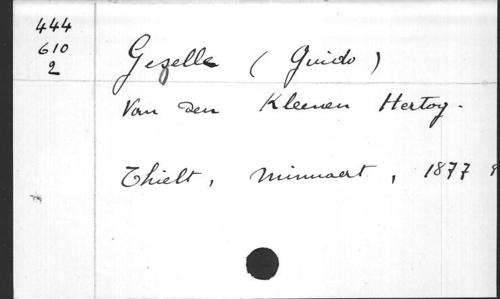 444
610
2
Gezelle (Guido)
Van den Kleenen Hertog.
Thielt, Minnaert, 1877